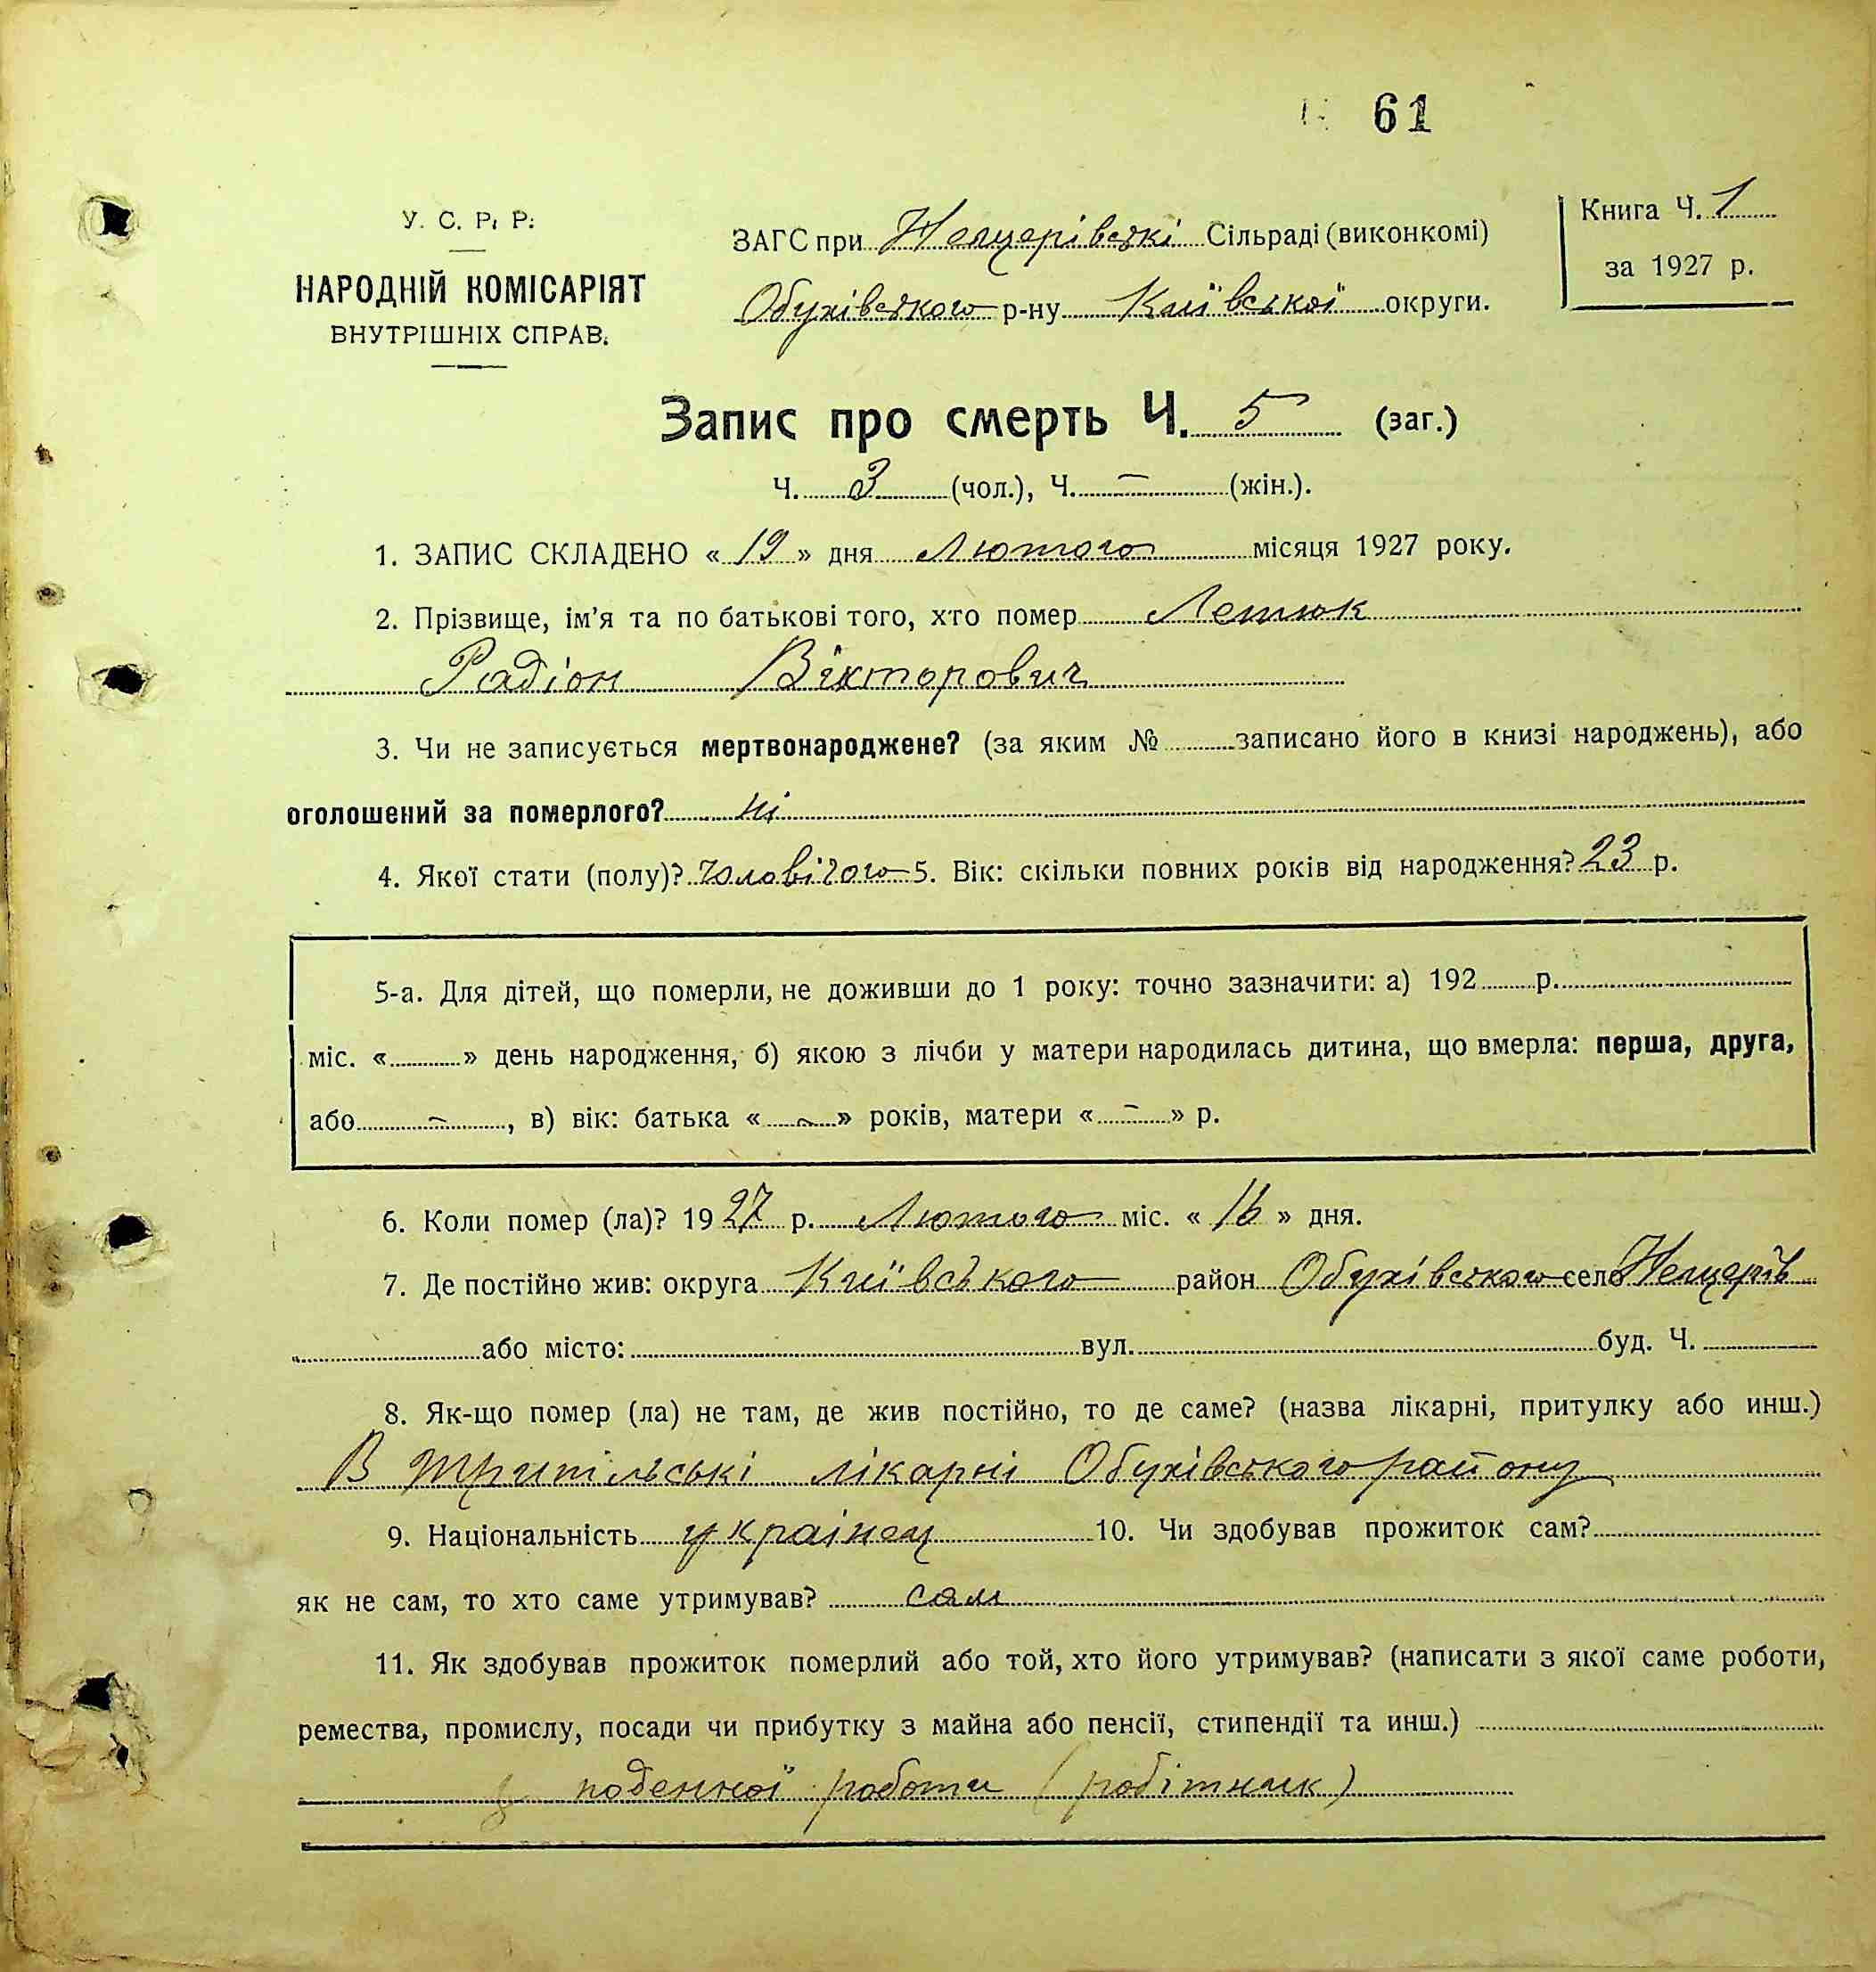 61
У. С. Р. Р.
НАРОДНІЙ КОМІСАРІЯТ
ВНУТРІШНІХ СПРАВ.
ЗАГС при Нещерівські Сільраді (виконкомі)
Обухівського р-ну Київської округи.
Книга Ч. 1
за 1927 р.
Запис про смерть Ч. 5 (заг.)
Ч. 3 (чол.), Ч. – (жін.).
1. ЗАПИС СКЛАДЕНО « 19 » дня Лютого місяця 1927 року.
2. Прізвище, ім'я та по батькові того, хто помер Летюк
Радіон Вікторович
3. Чи не записується мертвонароджене? (за яким № записано його в книзі народжень), або
оголошений за померлого? ні
4. Якої стати (полу)? чоловічого 5. Вік: скільки повних років від народження? 23 р.
5-а. Для дітей, що померли, не доживши до 1 року: точно зазначити: а) 192 р.
міс. « » день народження, б) якою з лічби у матери народилась дитина, що вмерла: перша, друга,
або – , в) вік: батька « – » років, матери « – » р.
6. Коли помер (ла)? 1927 р. Лютого міс. « 16 » дня.
7. Де постійно жив: округа Київського район Обухівського село Нещерів
або місто: вул. буд. Ч.
8. Як-що помер (ла) не там, де жив постійно, то де саме? (назва лікарні, притулку або инш.)
В Трипільські лікарні Обухівського району
9. Національність українец 10. Чи здобував прожиток сам?
як не сам, то хто саме утримував? сам
11. Як здобував прожиток померлий або той, хто його утримував? (написати з якої саме роботи,
ремества, промислу, посади чи прибутку з майна або пенсії, стипендії та инш.)
з поденної роботи (робітник)